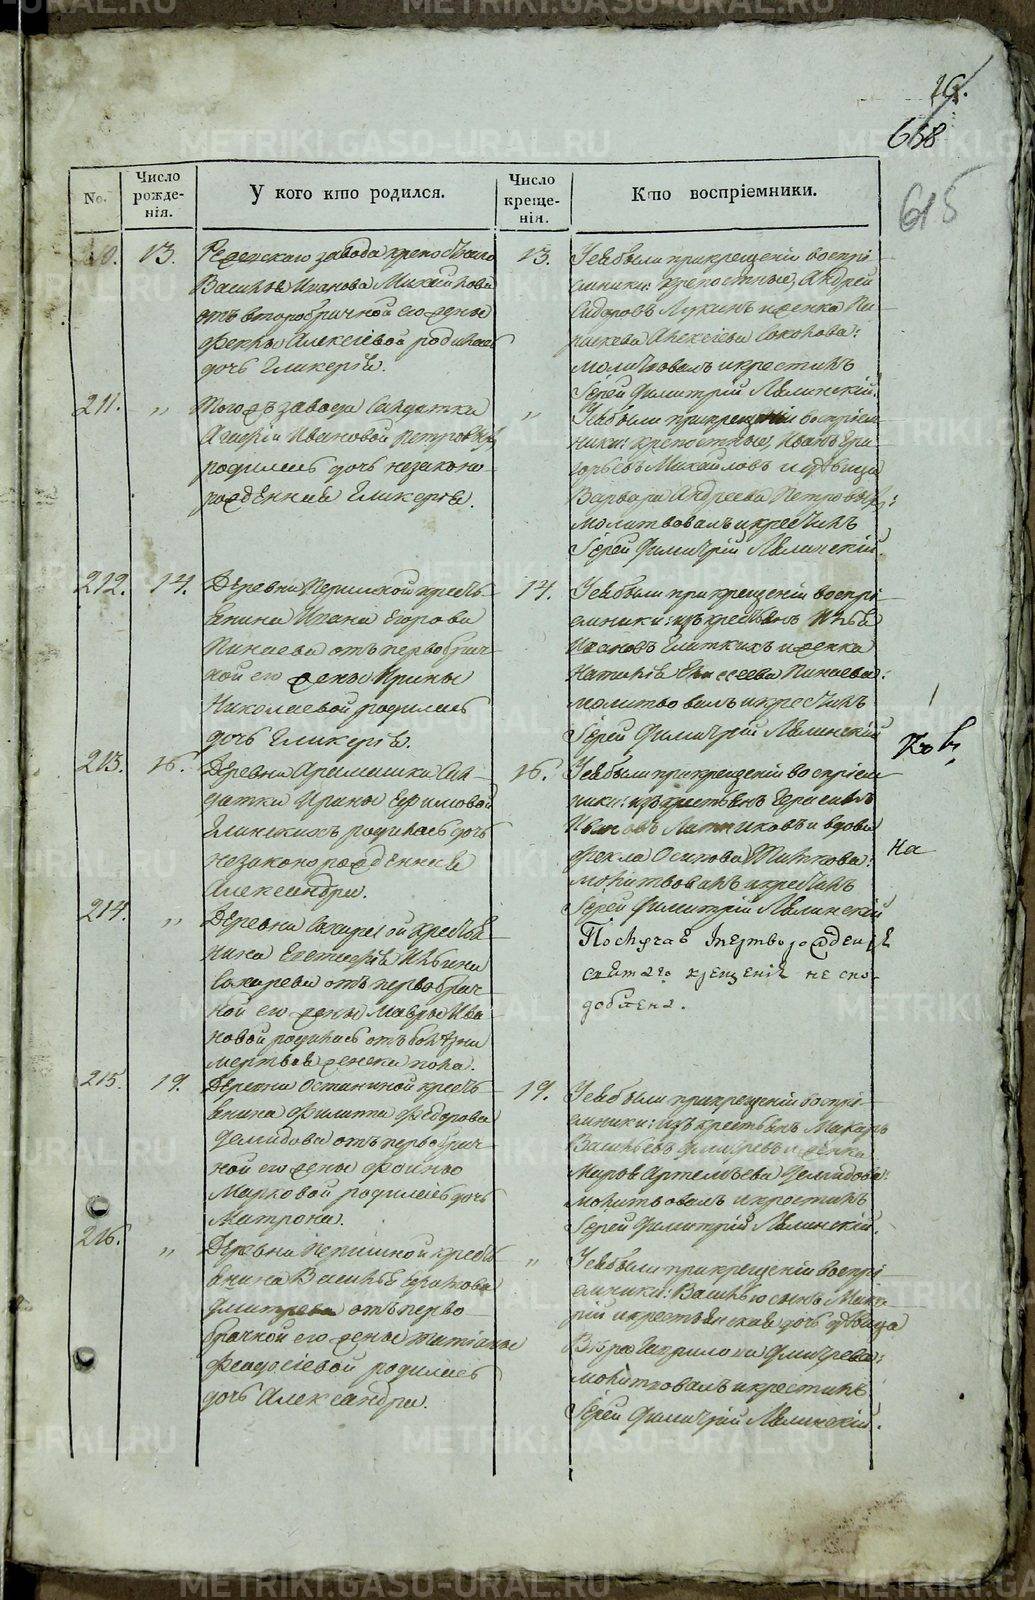 29.
658
615
No.
Число рожде-нія.
У кого кто родился.
Число креще-нія.
Кто воспріемники.
210. 13.
Режевскаго завода крепостнаго
Василья Иванова Михайлова
отъ второбрачной его жены
Феклы Алексіевой родилась
дочь Гликерія.
13.
У ея были при крещеніи воспрі-
емники: крепостные, Андрей
Сидоровъ Лукинъ и женка Па-
раскева Алексіева Соколова:
молитвовалъ и крестилъ
Іерей Димитрій Лялинскій.
211. „
Тогожъ завода Салдатки
Ивановой Петровыхъ
родилась дочь незаконо-
рожденная Гликерія.
„
У ея были при крещеніи воспріем-
ники: крепостные, Иванъ Гри-
горьевъ Михайловъ и девица
Варвара Андреева Петровыхъ:
молитвовалъ и крестилъ
Іерей Димитрій Лялинскій.
212. 14.
Деревни крестья-
нина Ивана Егорова
Минаева отъ первобрач-
ной его жены Ирины
Николаевой родилась
дочь Гликерія.
14.
У ея были при крещеніи воспрі-
емники: изъ крестьянъ Илья
Ивановъ и женка
Наталія Елисеева Минаева:
молитвовалъ и крестилъ
Іерей Димитрій Лялинскій
213. 16.
Деревни Арамашки Сал-
датки Ирины Ефимовой
Глинскихъ родилась дочь
незаконорожденная
Александра.
16.
У ея были при крещеніи воспріем-
ники: изъ крестьянъ Герасимъ
Ивановъ Латниковъ и вдова
Фекла Осипова
молитвовалъ и крестилъ
Іерей Димитрій Лялинскій
на
214. „
Деревни Сохаревой крестья-
нина Ильина
Сохарева отъ первобрач-
ной его жены Мавры Ива-
новой родилась отъ болезни
мертвая женска пола.
По случаю мертворожденія
святаго крещенія не спо-
доблена.
215. 19.
Деревни Останиной крестья-
нина Филиппа Федорова
Демидова отъ первобрач-
ной его жены
Марковой родилась дочь
Матрона.
19.
У ея были при крещеніи воспрі-
емники: изъ крестьянъ Макаръ
Васильевъ Дмитревъ и женка
Артемьева Демидова:
молитвовалъ и крестилъ
Іерей Димитрій Лялинскій.
216. „
Деревни крестья-
нина Василья
Дмитрева отъ перво-
брачной его жены Татіаны
Феодосіевой родилась
дочь Александра.
„
У ея были при крещеніи воспрі-
емники:
и крестьянская дочь девица
Вера Кирилова Дмитрева:
молитвовалъ и крестилъ
Іерей Димитрій Лялинскій.
METRIKI.GASO-URAL.RU